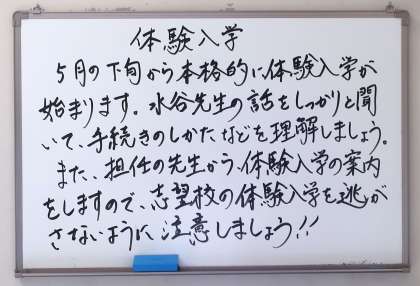 体験入学
5月の下旬から本格的に体験入学が
始まります。水谷先生の話をしっかりと聞
いて、手続きのしかたなどを理解しましょう。
また、担任の先生から、体験入学の案内
をしますので、志望校の体験入学を逃が
さないように注意しましょう!!